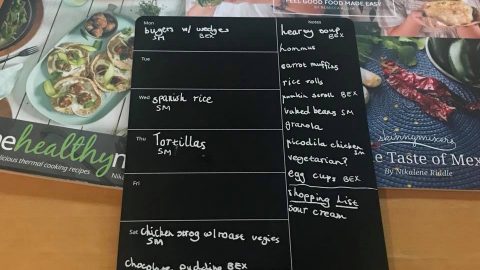 FEEL GOOD FOOD MADE EASY
Mon
burgers w/ wedges
SM BEX
Tue
Wed
spanish rice
SM
Thu
Tortillas
SM
Fri
Sat
chicken strog w/ roast vegies
SM
chocolate pudding BEX
Notes
hearty soup
BEX
hommus
carrot muffins
rice rolls
pumkin scroll BEX
baked beans SM
granola
picadilla chicken
SM
vegetarian?
egg cups BEX
shopping list
sour cream
healthy
delicious thermal cooking recipes
skinnymixers
e Taste of Mex
By Nikalene Riddle